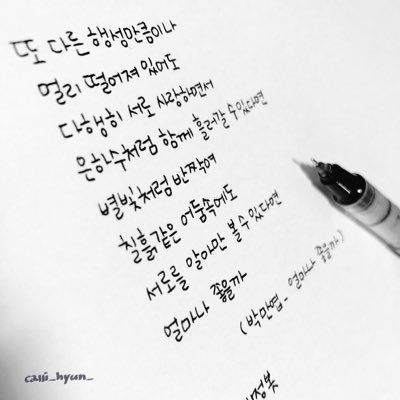 또 다른 행성만큼이나
멀리 떨어져 있어도
다행히 서로 사랑하면서
은하수처럼 함께 흘러갈 수 있다면
별빛처럼 반짝여
칠흙같은 어둠속에도
서로를 알아만 볼 수 있다면
얼마나 좋을까
(박만엽 - 얼마나 좋을까)
calli_hyun_